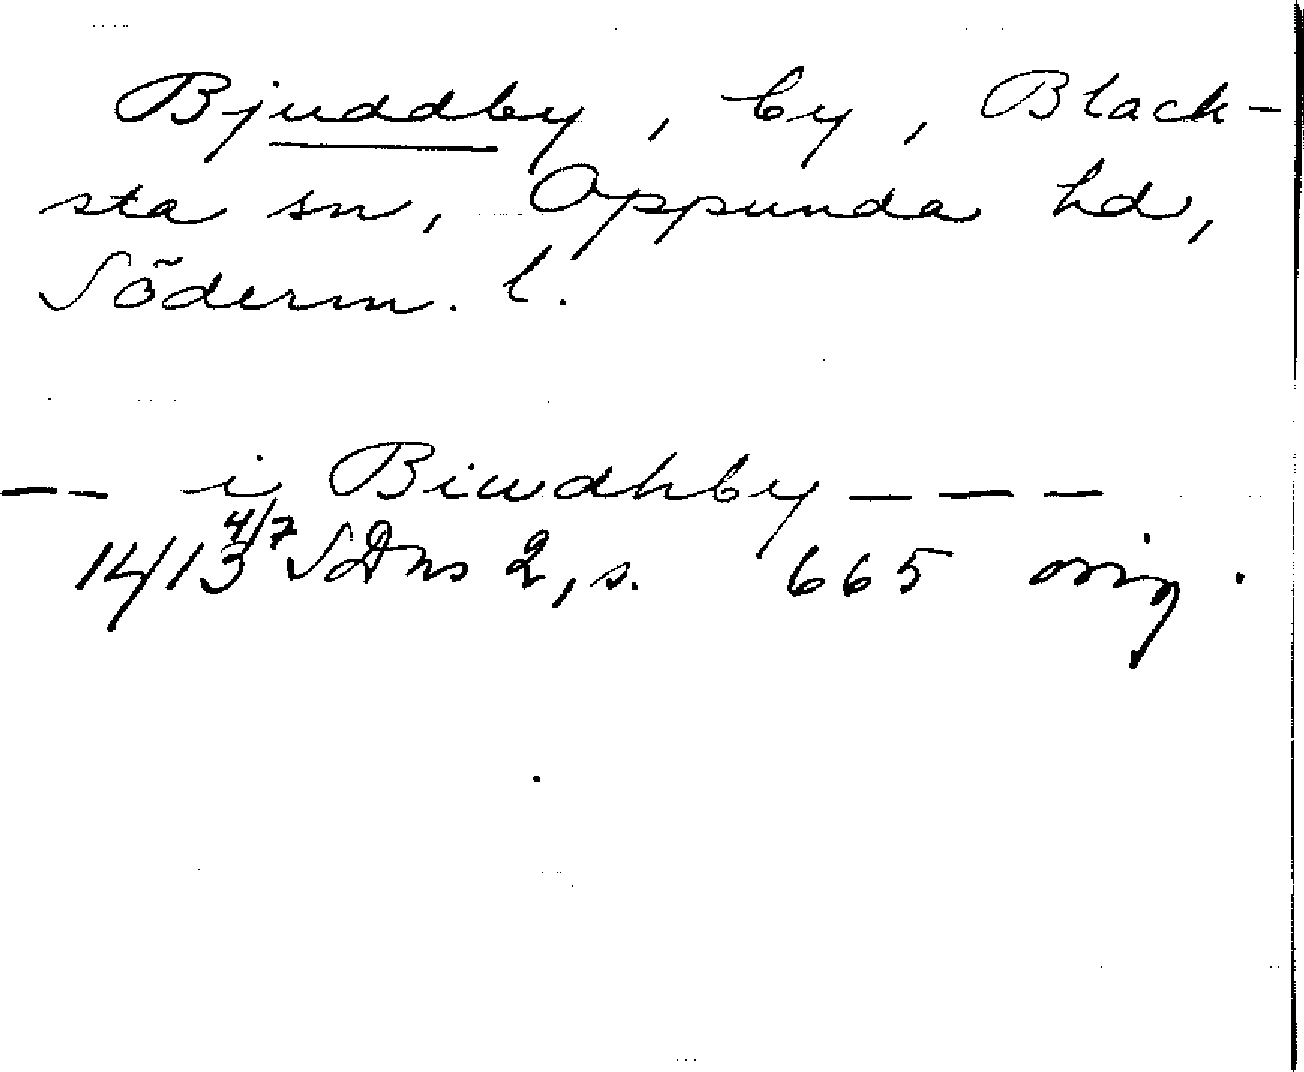 Bjuddby, by, Black-
sta sn, Oppunda hd,
Söderm. l.
-- i Biwdhby ---
1413 4/7 SDns 2, s. 665 orig.